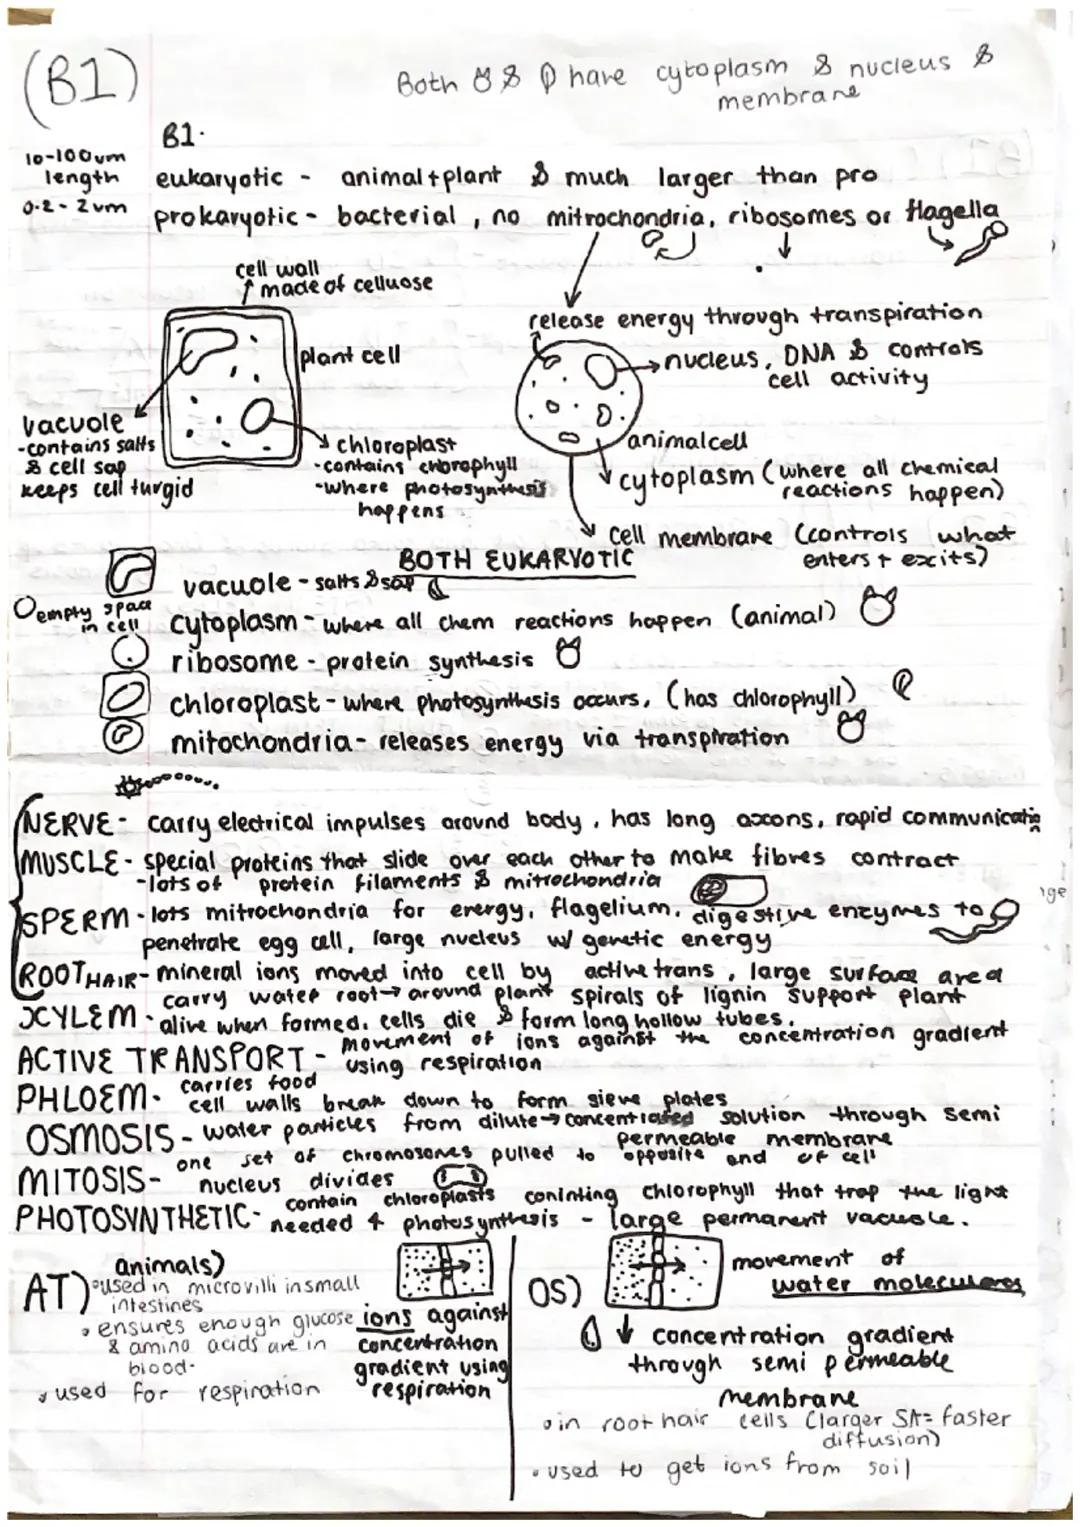 (B1)
Both & have cytoplasm & nucleus &
membrane
B1.
10-100um
length
eukaryotic - animal+plant & much larger than pro
0.2-2um
prokaryotic - bacterial, no mitrochondria, ribosomes or flagella
cell wall
made of celluose
plant cell
release energy through transpiration
nucleus, DNA & controls
cell activity
vacuole
-contains salts
& cell sap
keeps cell turgid
chloroplast
-contains chorophyll
-where photosynthesis
happens
animalcell
cytoplasm (where all chemical
reactions happen)
cell membrane (controls what
enters + excits)
BOTH EUKARYOTIC
vacuole - salts & sap
empty space
in cell
cytoplasm - where all chem reactions happen (animal)
ribosome - protein synthesis
chloroplast - where photosynthesis occurs, (has chlorophyll)
mitochondria - releases energy via transpiration
NERVE - carry electrical impulses around body, has long axons, rapid communicatin
MUSCLE - special proteins that slide over each other to make fibres contract
-lots of protein filaments & mitrochondria
SPERM - lots mitrochondria for energy, flagelium, digestive enzymes to
penetrate egg cell, large nucleus w/ genetic energy
ROOT HAIR - mineral ions moved into cell by active trans, large surface area
carry water root → around plant spirals of lignin support plant
XYLEM - alive when formed. cells die & form long hollow tubes.
ACTIVE TRANSPORT - movement of ions against the concentration gradient
using respiration
PHLOEM - carries food
cell walls break down to form sieve plates
OSMOSIS - water particles from dilute → concentrated solution through semi
permeable membrane
MITOSIS - one set of chromosomes pulled to opposite end of cell
nucleus divides
PHOTOSYNTHETIC - contain chloroplasts coninting chlorophyll that trap the light
needed 4 photosynthesis - large permanent vacuole.
AT) animals)
•used in microvilli in small
intestines
•ensures enough glucose
& amino acids are in
blood.
•used for respiration
ions against
concentration
gradient using
respiration
OS)
movement of
water moleculares
↓ concentration gradient
through semi permeable
membrane
•in root hair cells (larger SA = faster
diffusion)
•used to get ions from soil